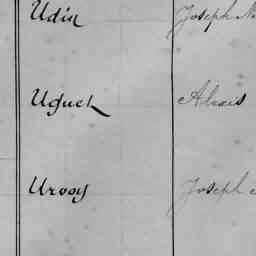 Udin Joseph
Uguet Alexis
Urooy Joseph